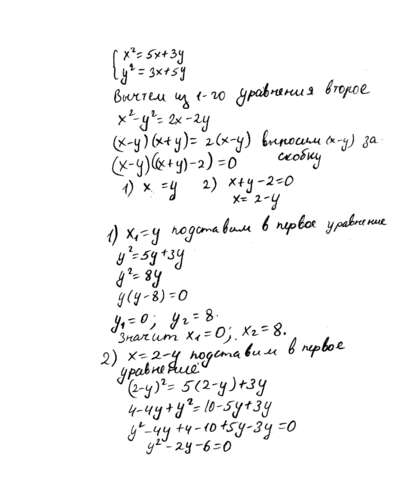 { x² = 5x + 3y
y² = 3x + 5y
Вычтем из 1-го уравнения второе
x² - y² = 2x - 2y
(x-y)(x+y) = 2(x-y) выносим (x-y) за
скобку
(x-y)((x+y)-2) = 0
1) x = y 2) x+y-2=0
x = 2-y
1) x₁ = y подставим в первое уравнение
y² = 5y + 3y
y² = 8y
y(y-8) = 0
y₁ = 0; y₂ = 8.
Значит x₁ = 0; x₂ = 8.
2) x = 2-y подставим в первое
уравнение
(2-y)² = 5(2-y) + 3y
4-4y+y² = 10-5y+3y
y²-4y+4-10+5y-3y=0
y²-2y-6=0